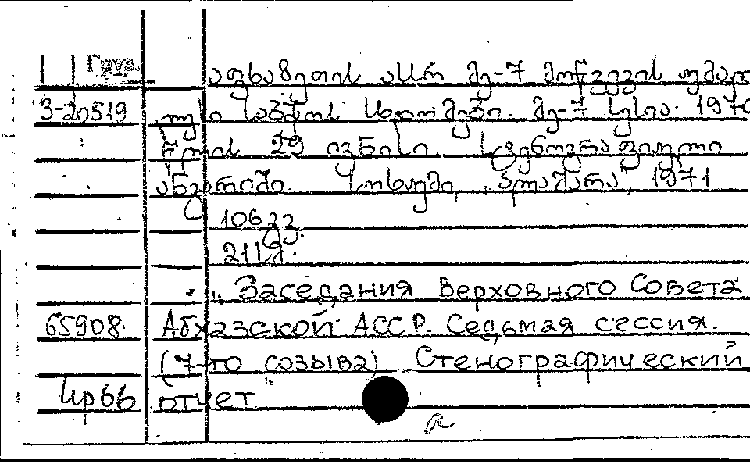 Груз.
აფხაზეთის ასსრ მე-7 მოწვევის უმაღ
3-20519 ლესი საბჭოს სხდომები. მე-7 სესია. 1970
წლის 29 ივნისი. სტენოგრაფიული
ანგარიში. სოხუმი, „ალაშარა", 1971
106 გვ.
211 ც.
„Заседания Верховного Совета
65908. Абхазской АССР. Седьмая сессия.
(7-го созыва) Стенографический
отчет"